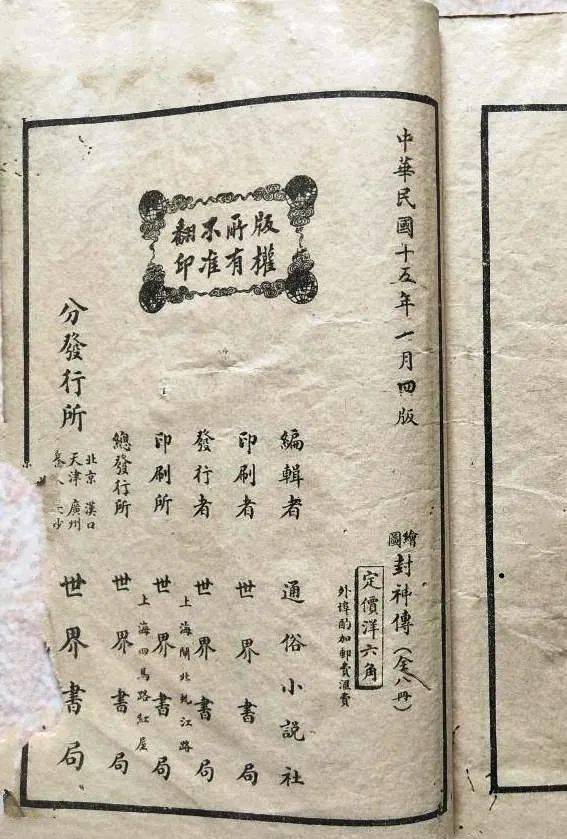 中華民國十五年一月四版
版權
所有
不准
翻印
繪圖封神傳（全八冊）
定價洋六角
外埠酌加郵費滙費
編輯者 通俗小説社
印刷者 世界書局
發行者 世界書局
上海閘北虬江路
印刷所 世界書局
上海四馬路紅屋
總發行所 世界書局
分發行所
北京 漢口
天津 廣州
世界書局